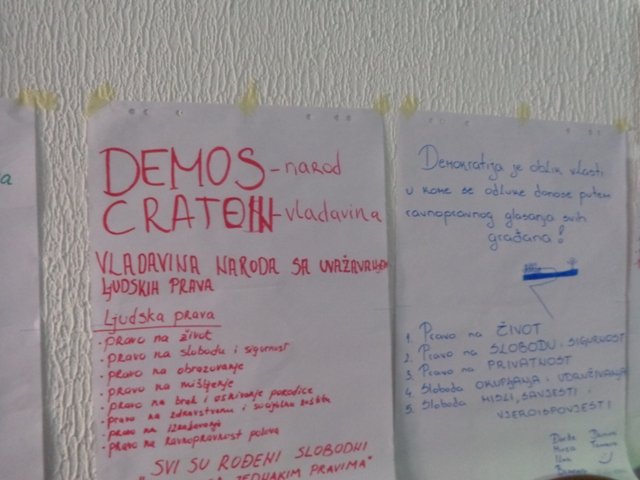 DEMOS - narod
CRATOIN - vladavina
VLADAVINA NARODA SA UVAŽAVANJEM
LJUDSKIH PRAVA
Ljudska prava
• pravo na život
• pravo na slobodu i sigurnost
• pravo na obrazovanje
• pravo na mišljenje
• pravo na brak i osnivanje porodice
• pravo na zdravstvenu i socijalnu zaštitu
• pravo na izražavanje
• pravo na ravnopravnost polova
"SVI SU ROĐENI SLOBODNI
JEDNAKIM PRAVIMA"
Demokratija je oblik vlasti
u kome se odluke donose putem
ravnopravnog glasanja svih
građana!
1. Pravo na ŽIVOT
2. Pravo na SLOBODU i SIGURNOST
3. Pravo na PRIVATNOST
4. Sloboda OKUPLJANJA i UDRUŽIVANJA
5. Sloboda MISLI, SAVJESTI i
VJEROISPOVJESTI